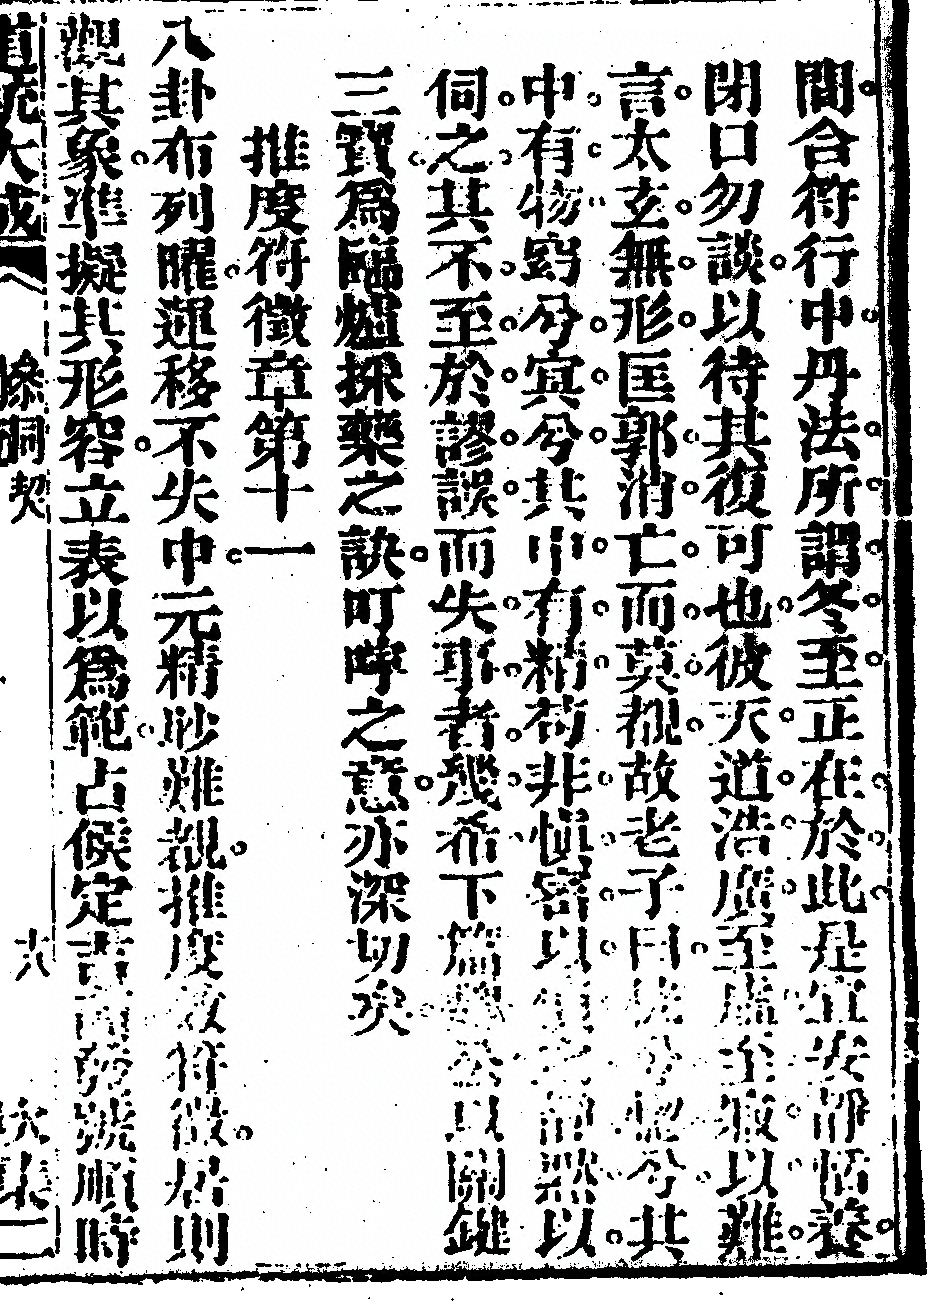 間合符行中丹法所謂冬至正在於此是宜安靜恬養
閉口勿談以待其復可也彼天道浩廣至虛至寂以難
言太玄無形匡郭消亡而莫覩故老子曰恍兮惚兮其
中有物窈兮冥兮其中有精苟非慎密以默以
伺之其不至於謬誤而失事者幾希下篇以關鍵
三寶爲臨爐採藥之訣叮嚀之意亦深切矣
推度符徵章第十一
八卦布列曜運移不失中元精眇難覩推度效符徵居則
觀其象準擬其形容立表以爲範占候定吉凶發號順時
道統大成
參同契
十八